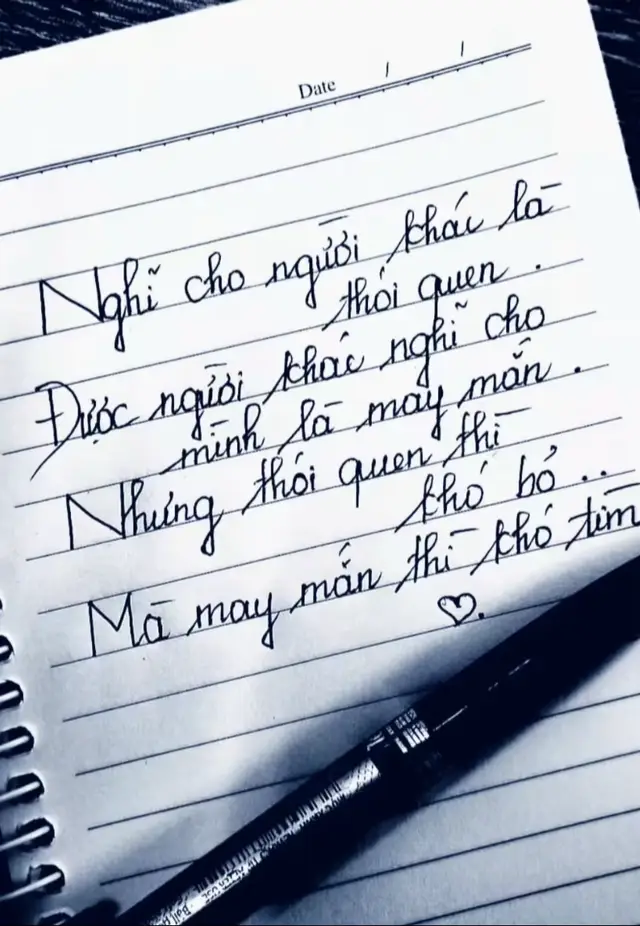 Date / /
Nghĩ cho người khác là
thói quen.
Được người khác nghĩ cho
mình là may mắn.
Nhưng thói quen thì
khó bỏ..
Mà may mắn thì khó tìm
♡.